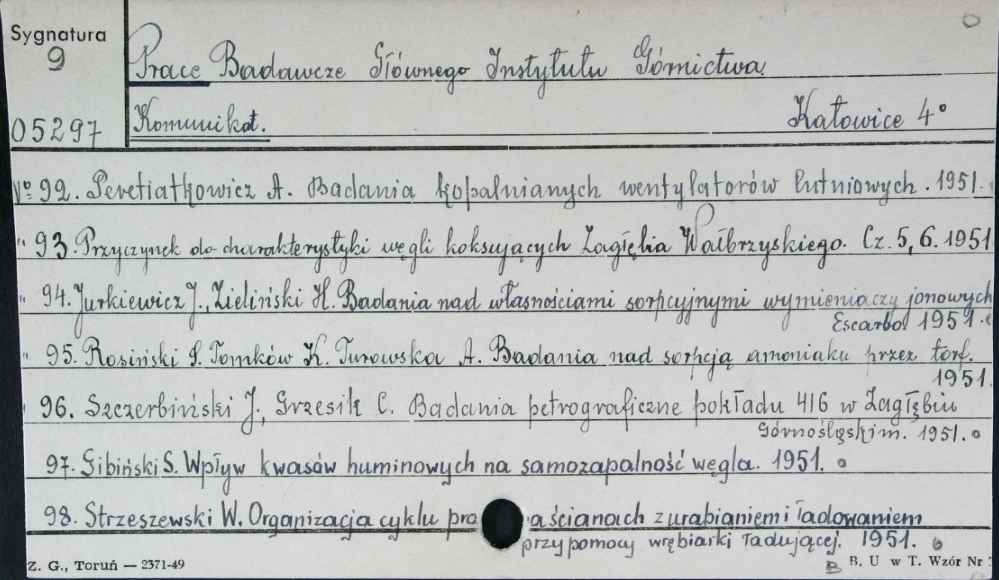 Sygnatura
9
05297
Prace Badawcze Głównego Instytutu Górnictwa.
Komunikat. Katowice 4°
No 92. Peretiatkowicz A. Badania kopalnianych wentylatorów lutniowych. 1951.
" 93. Przyczynek do charakterystyki węgli koksujących Zagłębia Wałbrzyskiego. Cz. 5, 6. 1951
" 94. Jurkiewicz J., Zieliński H. Badania nad własnościami sorpcyjnymi wymieniaczy jonowych
Escarbo 1951.
" 95. Rosiński S. Tomków K. Turowska A. Badania nad sorpcją amoniaku przez torf.
1951.
" 96. Szczerbiński J., Grzesik C. Badania petrograficzne pokładu 416 w Zagłębiu
Górnośląskim. 1951.
97. Gibiński S. Wpływ kwasów huminowych na samozapalność węgla. 1951.
98. Strzeszewski W. Organizacja cyklu ścianach z urabianiem i ładowaniem
przy pomocy wrębiarki ładującej. 1951.
Z. G., Toruń — 2371-49
B. U w T. Wzór Nr